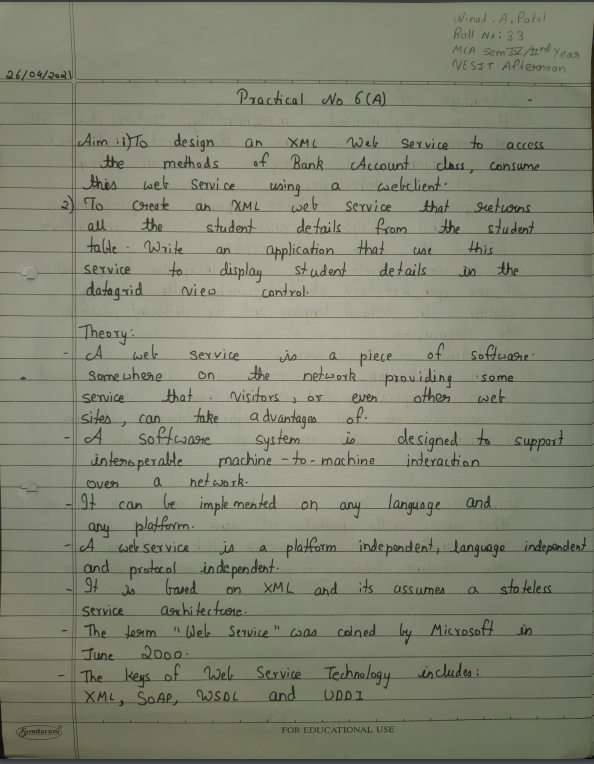 Vinod . A. Patil
Roll No: 33
MCA Sem IV/IInd Year
VESIT Afternoon
26/04/2021
Practical No 6(A)
Aim : i) To design an XML Web service to access
the methods of Bank Account class, consume
this web service using a webclient.
2) To create an XML web service that returns
all the student details from the student
table. Write an application that use this
service to display student details in the
datagrid view control.
Theory:
- A web service is a piece of software.
somewhere on the network providing some
service that . visitors, or even other web
sites, can take advantages of.
- A software system is designed to support
interoperable machine-to-machine interaction
over a network.
- It can be implemented on any language and
any platform.
- A webservice is a platform independent, language independent
and protocol independent.
- It is based on XML and its assumes a stateless
service architecture.
- The term "Web Service" was coined by Microsoft in
June 2000.
- The keys of Web Service Technology includes:
XML, SOAP, WSDL and UDDI
Sundaram
FOR EDUCATIONAL USE